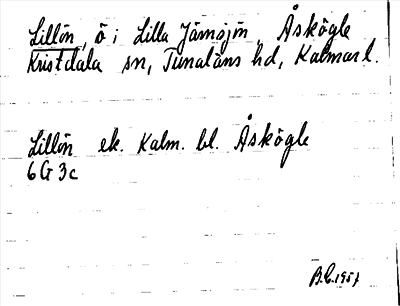 Lillön, ö i Lilla Järnsjön, Åskögle
Kristdala sn, Tunaläns hd, Kalmar l.
Lillön ek. Kalm. bl. Åskögle
6G3c
B.E. 1957